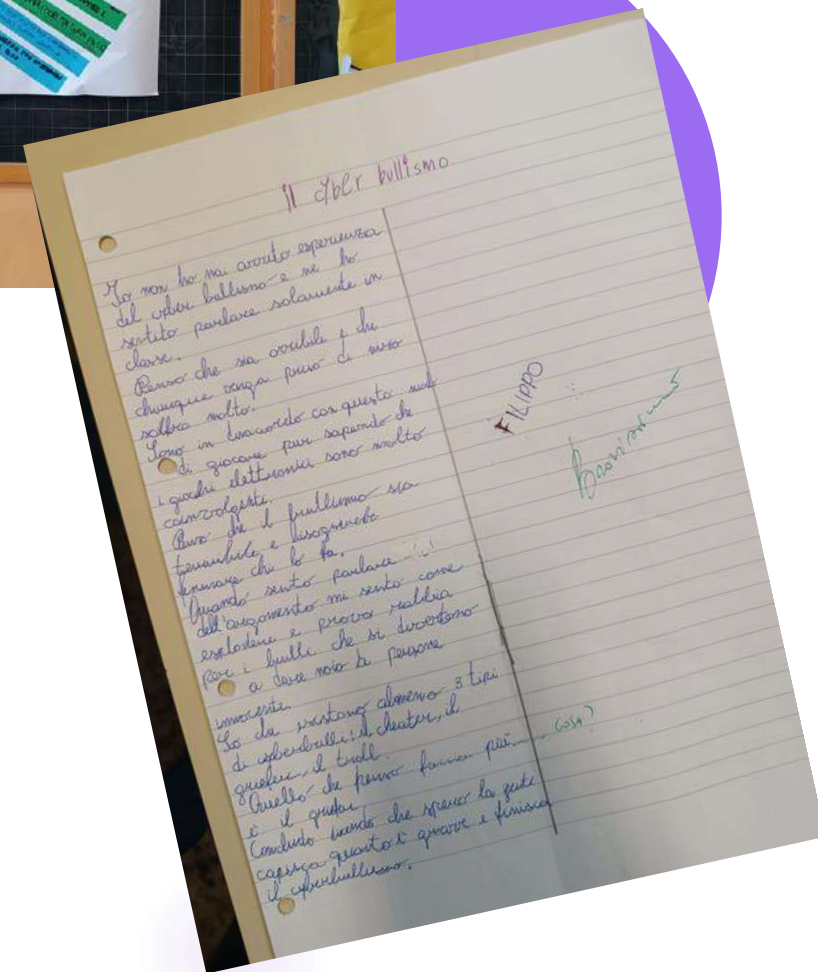 il cyber bullismo
Io non ho mai avuto esperienza
del cyber bullismo e ne ho
sentito parlare solamente in
classe.
Penso che sia orribile e che
chiunque venga preso di mira
soffra molto.
Sono in disaccordo con questo modo
di giocare pur sapendo che
i giochi elettronici sono molto
coinvolgenti.
Penso che il bullismo sia
e bisognerebbe
fermare chi lo fa.
Quando sento parlare
dell'argomento mi sento come
esplodere e provo rabbia
per i bulli che si divertono
a dare noia a persone
innocenti.
So che esistono almeno 3 tipi
di cyberbulli: il cheater, il
griefer, il troll.
Quello che penso faccia più cosa?
è il griefer.
Concludo dicendo che spero la gente
capisca quanto è grave e finisca
il cyberbullismo.
FILIPPO